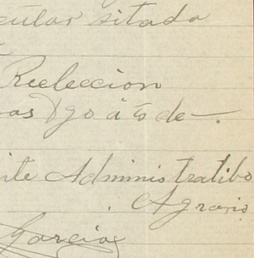 cular sitada
Reeleccion
as
de
nte Administratibo
Agrario
Garcia